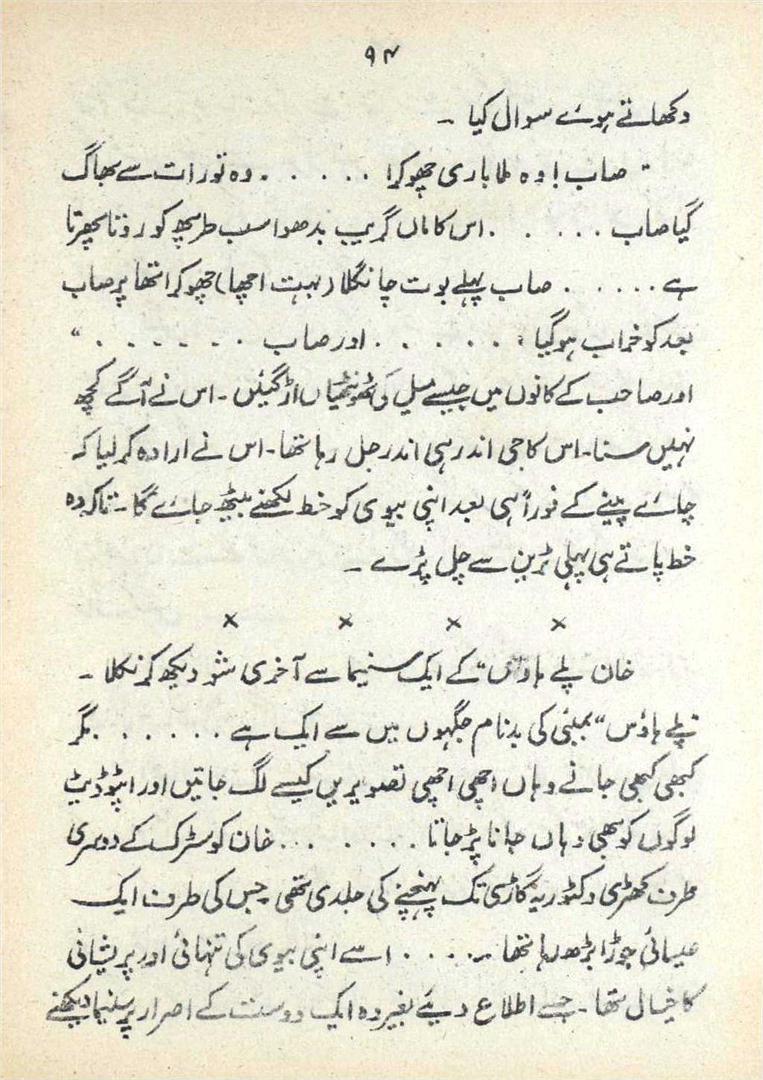 ۹۴
دکھاتے ہوئے سوال کیا ۔
" صاب! وہ ملاباری چھوکرا . . . . . . وہ تو رات سے بھاگ
گیا صاب . . . . . . اس کا ماں گریب بدھوا سب طرپھ کو روتا پھرتا
ہے . . . . . . صاب پہلے بوت چانگلا (بہت اچھا) چھوکرا تھا پر صاب
بعد کو خراب ہو گیا . . . . . . . اور صاب . . . . . . "
اور صاحب کے کانوں میں جیسے میل کی ٹھونٹھیاں اڑ گئیں ۔ اس نے آگے کچھ
نہیں سنا ۔ اس کا جی اندر ہی اندر جل رہا تھا ۔ اس نے ارادہ کر لیا کہ
چائے پینے کے فوراً ہی بعد اپنی بیوی کو خط لکھنے بیٹھ جائے گا ۔ تاکہ وہ
خط پاتے ہی پہلی ٹرین سے چل پڑے ۔
× × × ×
خان پلے ہاؤس" کے ایک سنیما سے آخری شو دیکھ کر نکلا ۔
"پلے ہاؤس" بمبئی کی بدنام جگہوں میں سے ایک ہے . . . . . . . مگر
کبھی کبھی جانے وہاں اچھی اچھی تصویریں کیسے لگ جاتیں اور اپٹوڈیٹ
لوگوں کو بھی وہاں جانا پڑ جاتا . . . . . . . . خان کو سڑک کے دوسری
طرف کھڑی وکٹوریہ گاڑی تک پہنچنے کی جلدی تھی جس کی طرف ایک
عیسائی جوڑا بڑھ رہا تھا . . . . . . اسے اپنی بیوی کی تنہائی اور پریشانی
کا خیال تھا ۔ جسے اطلاع دیئے بغیر وہ ایک دوست کے اصرار پر سنیما دیکھنے